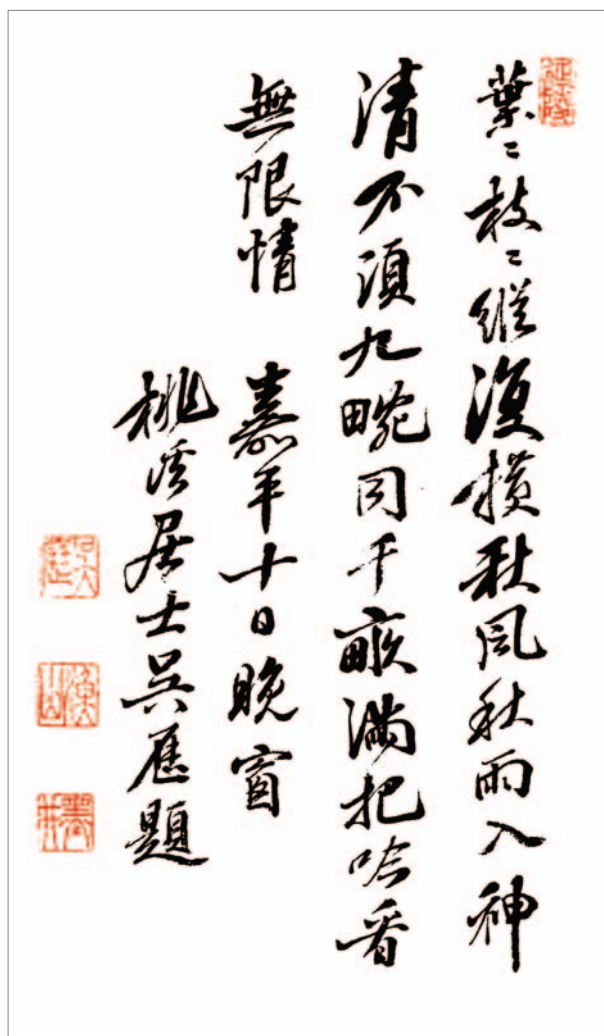 延陵
葉〻枝〻縱復橫秋風秋雨入神
清不須九畹同千畝滿把吟香
無限情 嘉平十日晚窗
桃溪居士吳歷題
漁山
墨井